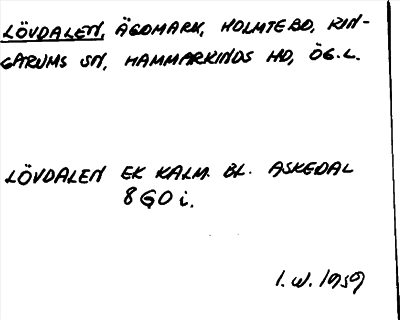 LÖVDALEN, ÄGOMARK, HOLMTEBO, RIN-
GARUMS SN, HAMMARKINDS HD, ÖG.L.
LÖVDALEN EK KALM. BL. ASKEDAL
8 G O i.
I. W. 1959